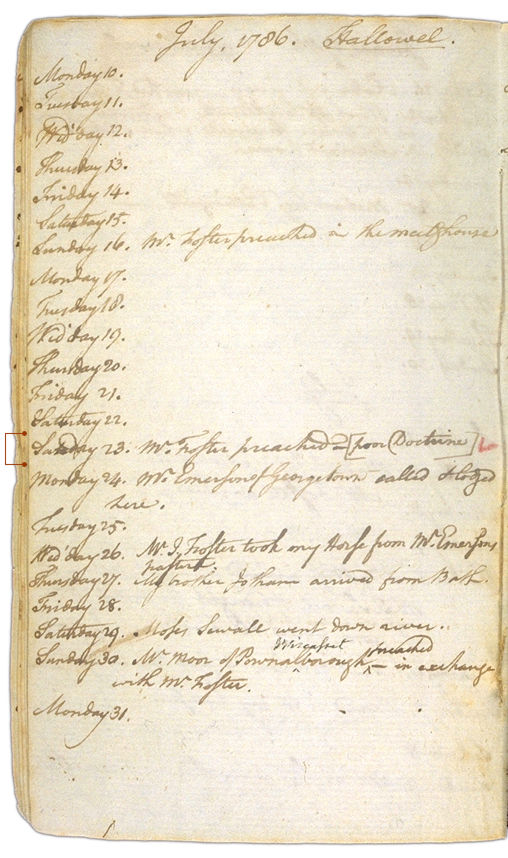 July, 1786. Hallowel.
Monday 10.
Tuesday 11.
Wed'day 12.
Thursday 13.
Friday 14.
Saturday 15.
Sunday 16. Mr. Foster preached in the meetg house
Monday 17.
Tuesday 18.
Wed'day 19.
Thursday 20.
Friday 21.
Saturday 22.
Sunday 23. Mr. Foster preached – [poor Doctrine]
Monday 24. Mr. Emerson of Georgetown called & lodged
here.
Tuesday 25.
Wed'day 26. Mr. J. Foster took my Horse from Mr. Emersons
pasture.
Thursday 27. My brother Jotham arrived from Bath.
Friday 28.
Saturday 29. Moses Sewall went down river.
Wiscasset preached
Sunday 30. Mr. Moor of Pownalborough ^ ^ – in exchange
with Mr. Foster.
Monday 31.